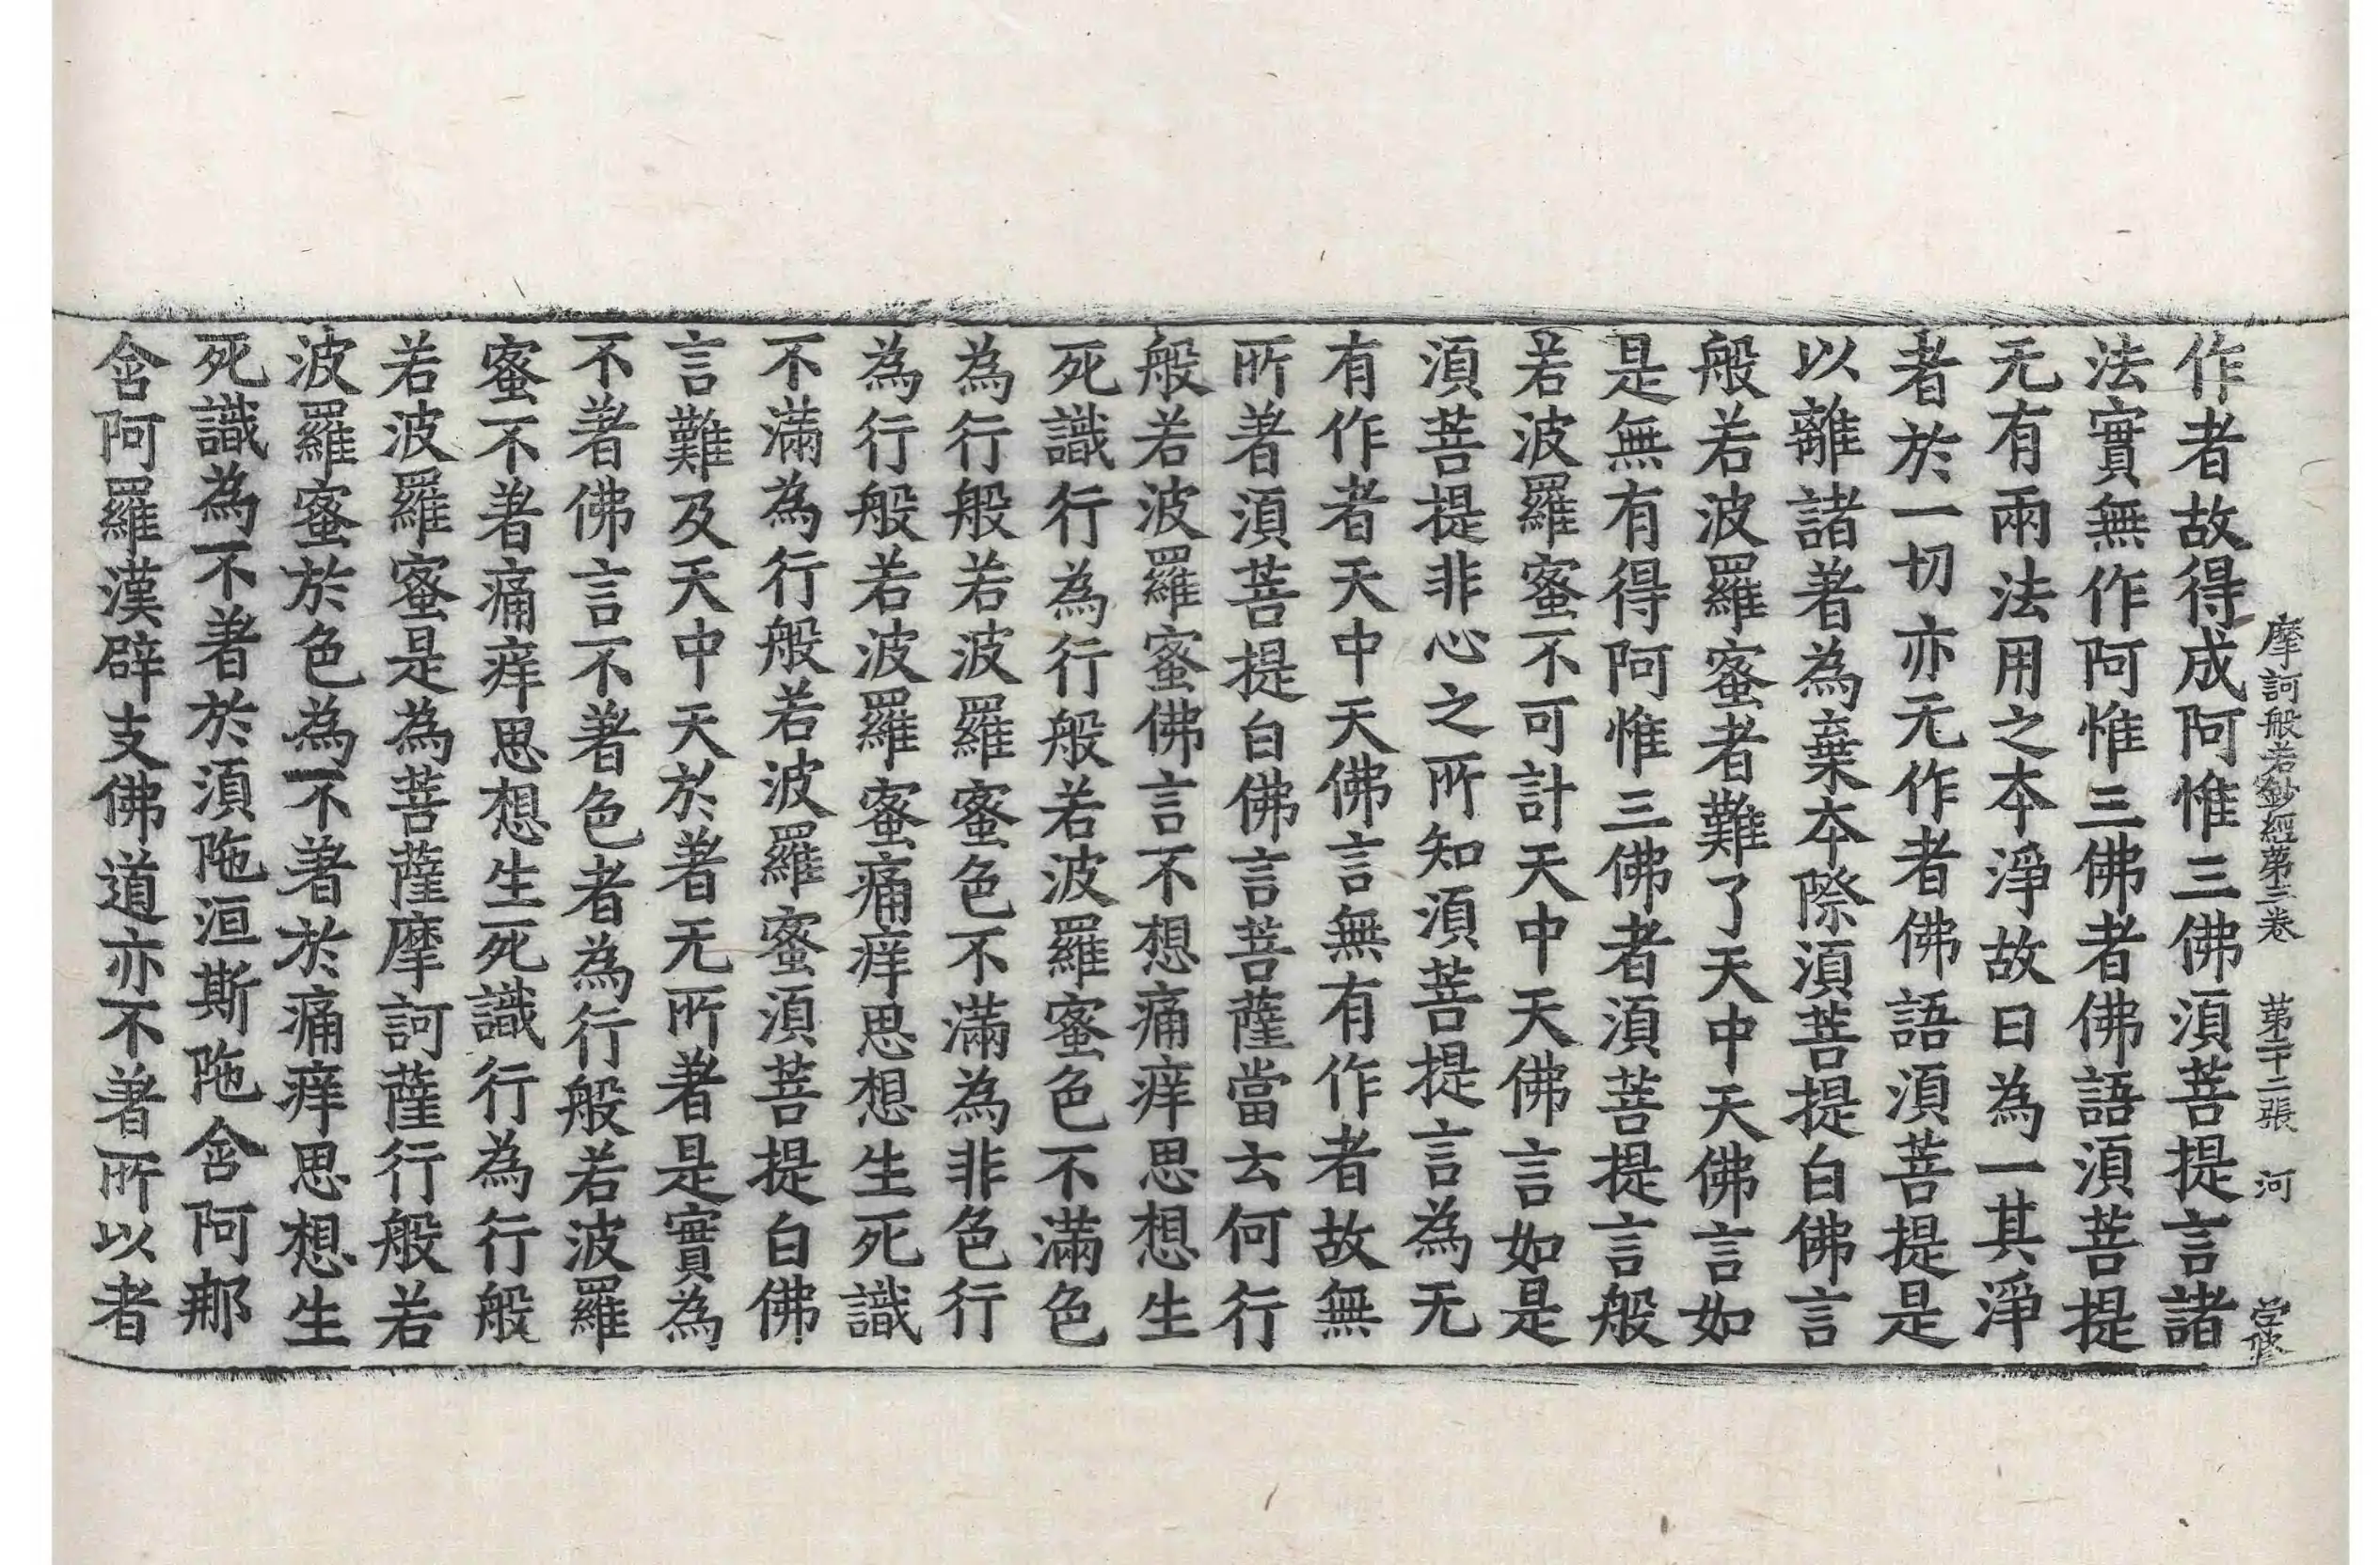 摩訶般若鈔經第三卷 第二十二張 河
作者故得成阿惟三佛須菩提言諸
法實無作阿惟三佛者佛語須菩提
无有兩法用之本淨故曰為一其淨
者於一切亦无作者佛語須菩提是
以離諸著為棄本際須菩提白佛言
般若波羅蜜者難了天中天佛言如
是無有得阿惟三佛者須菩提言般
若波羅蜜不可計天中天佛言如是
須菩提非心之所知須菩提言為无
有作者天中天佛言無有作者故無
所著須菩提白佛言菩薩當云何行
般若波羅蜜佛言不想痛痒思想生
死識行為行般若波羅蜜色不滿色
為行般若波羅蜜色不滿為非色行
為行般若波羅蜜痛痒思想生死識
不滿為行般若波羅蜜須菩提白佛
言難及天中天於著无所著是實為
不著佛言不著色者為行般若波羅
蜜不著痛痒思想生死識行為行般
若波羅蜜是為菩薩摩訶薩行般若
波羅蜜於色為不著於痛痒思想生
死識為不著於須陁洹斯陁含阿那
含阿羅漢辟支佛道亦不著所以者